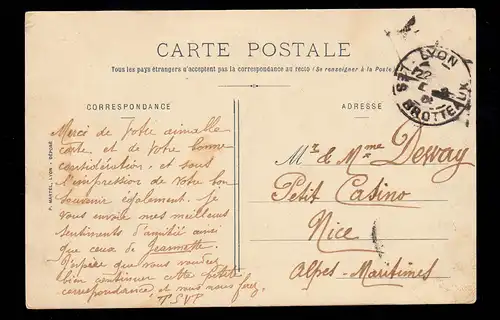 CARTE POSTALE
Tous les pays étrangers n'acceptent pas la correspondance au recto (Se renseigner à la Poste)
LYON
LES BROTTEAUX
CORRESPONDANCE
ADRESSE
P. MARTEL, LYON - DÉPOSÉ
Merci de Votre aimable
carte et de Votre bonne
considération, et sous
l'impression de Votre bon
souvenir également. Je
vous envoie mes meilleurs
sentiments d'amitié ainsi
que ceux de Jeannette.
J'espère que vous voudrez
bien continuer cette petite
correspondance et nous nous ferez
T.S.V.P
Mr & Mme Deway
Petit Casino
Nice
Alpes-Maritimes